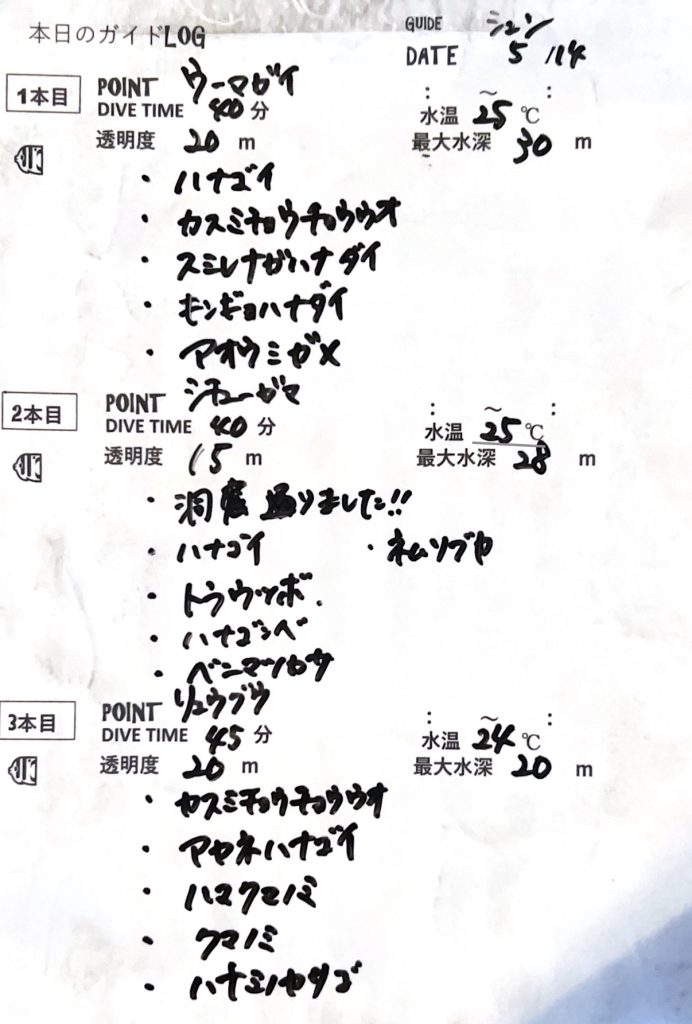 本日のガイドLOG GUIDE シュン
DATE 5/14
1本目 POINT ウーマガイ : ～ :
DIVE TIME 40分 水温 25℃
透明度 20 m 最大水深 30 m
・ハナゴイ
・カスミチョウチョウウオ
・スミレナガハナダイ
・キンギョハナダイ
・アオウミガメ
2本目 POINT シチューガマ : ～ :
DIVE TIME 40分 水温 25℃
透明度 15 m 最大水深 28 m
・洞窟通りました!!
・ハナゴイ ・ネムリブカ
・トラウツボ.
・ハナゴンベ
・ベニマツカサ
3本目 POINT リュウグウ : ～ :
DIVE TIME 45分 水温 24℃
透明度 20 m 最大水深 20 m
・カスミチョウチョウウオ
・アカネハナゴイ
・ハマクマノミ
・クマノミ
・ハナミノカサゴ